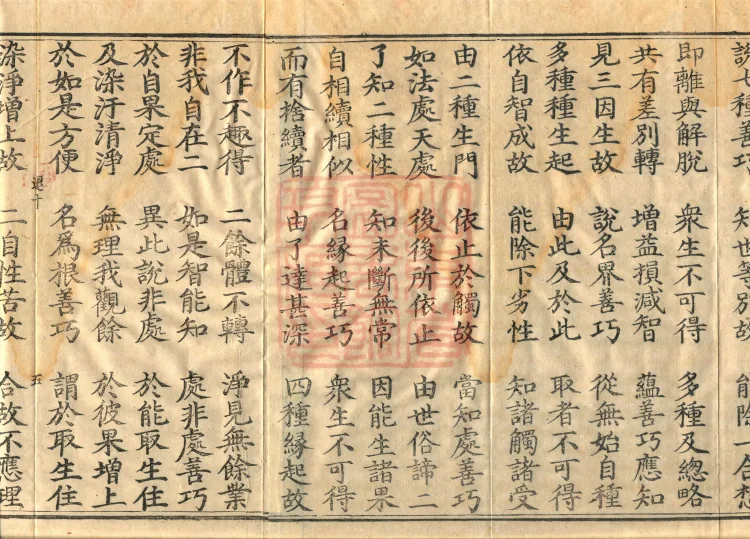 七種善巧　知世等別故　能除一合想
即離與解脫　衆生不可得　多種及緫略
共有差別轉　增益損減智　蘊善巧應知
見三因生故　說名界善巧　從無始自種
多種種生起　由此及於此　取者不可得
依自智成故　能除下劣性　知諸觸諸受
由二種生門　依止於觸故　當知處善巧
如法處天處　後後所依止　由世俗諦二
了知二種性　知未斷無常　因能生諸果
自相續相似　名緣起善巧　衆生不可得
而有捨續者　由了達甚深　四種緣起故
不作不趣得　二餘體不轉　淨見無餘業
非我自在二　如是智能知　處非處善巧
於自果定處　異此說非處　於能取生住
及染汙清淨　無理我觀餘　於彼果增上
於如是方便　名爲根善巧　謂於取生住
五
染淨增上故　二自性苦故　合故不應理